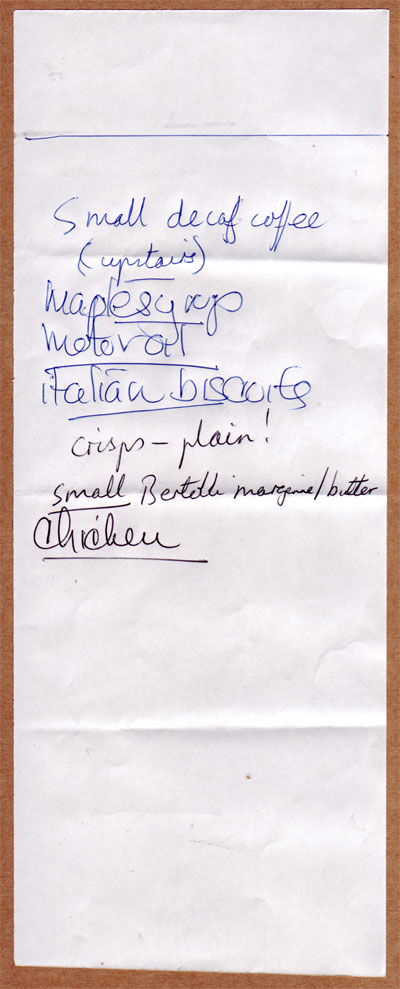 Small decaf coffee
(upstairs)
Maple syrup
Motor oil
italian biscuits
crisps – plain!
small Bertolli margerine/butter
Chicken